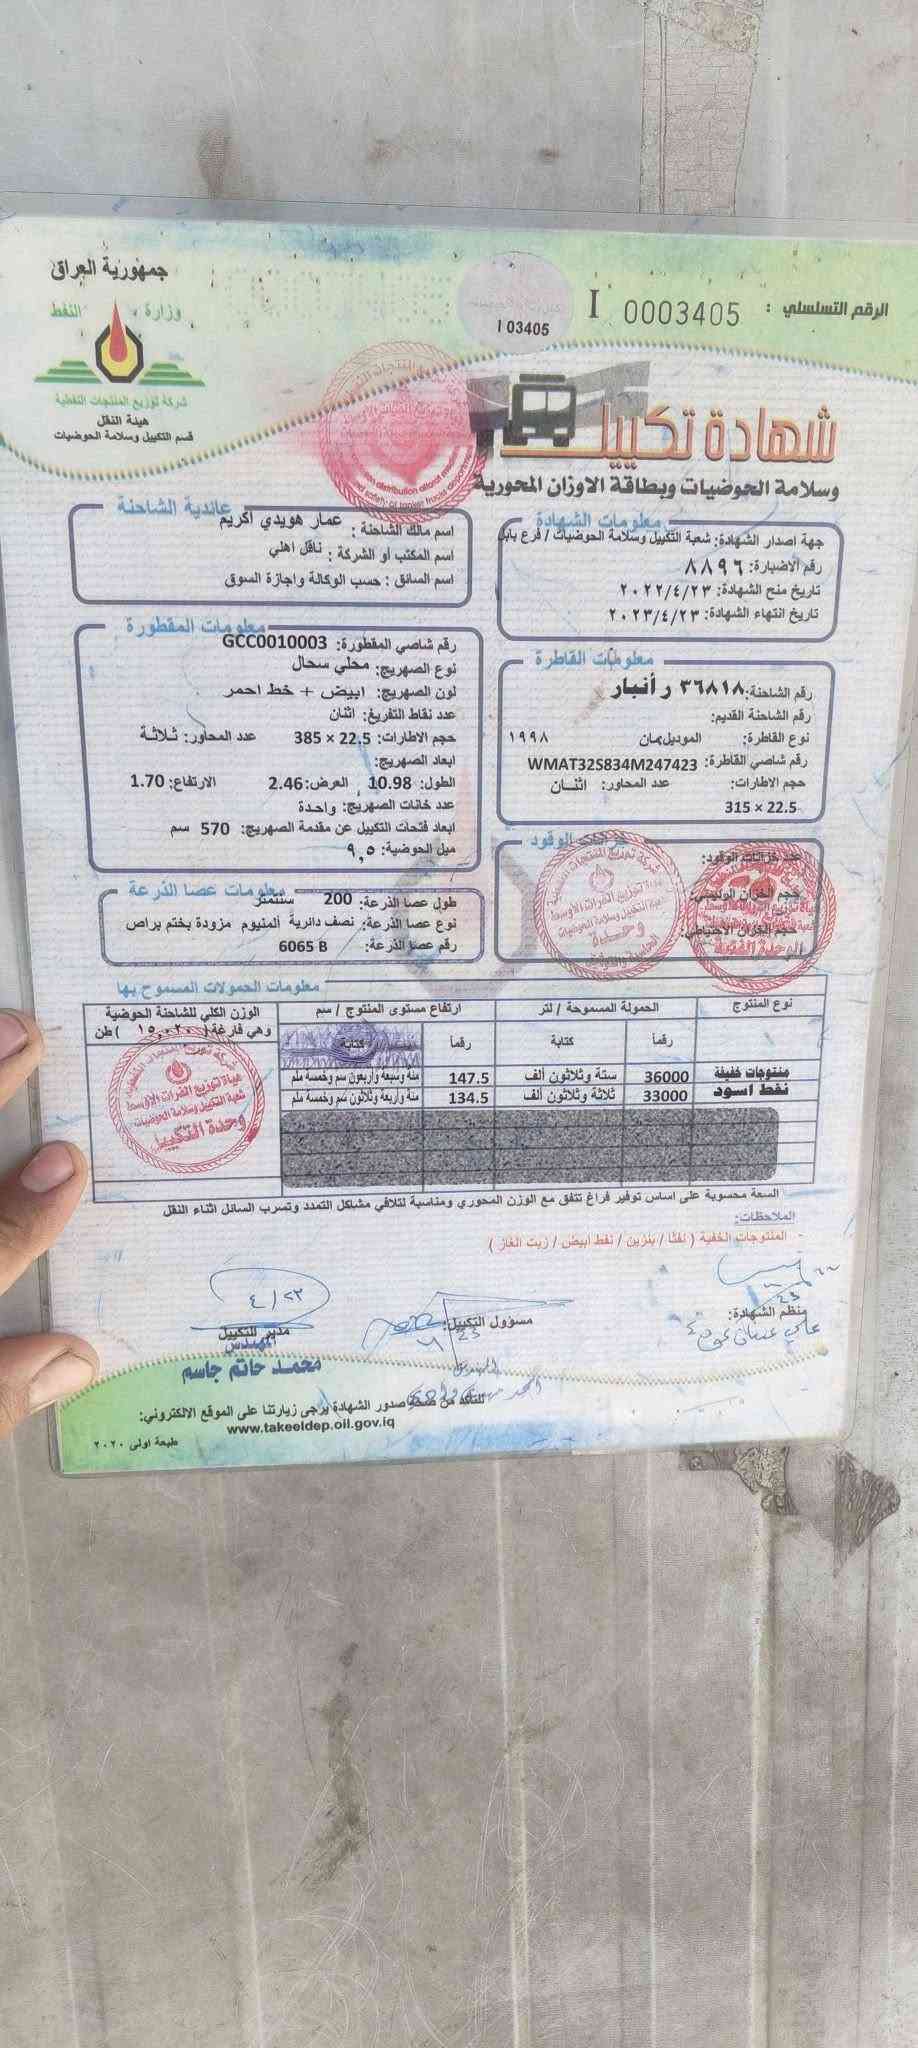 جمهورية العراق
وزارة النفط
شركة توزيع المنتجات النفطية
هيئة النقل
قسم التكييل وسلامة الحوضيات
الرقم التسلسلي : I 0003405
I 03405
شهادة تكييل
وسلامة الحوضيات وبطاقة الاوزان المحورية
معلومات الشهادة
جهة اصدار الشهادة: شعبة التكييل وسلامة الحوضيات / فرع بابل
رقم الاضبارة: ٨٨٩٦
تاريخ منح الشهادة: ٢٠٢٢/٤/٢٣
تاريخ انتهاء الشهادة: ٢٠٢٣/٤/٢٣
عائدية الشاحنة
اسم مالك الشاحنة : عمار هويدي اكريم
اسم المكتب أو الشركة : ناقل اهلي
اسم السائق : حسب الوكالة واجازة السوق
معلومات القاطرة
رقم الشاحنة: ٣٦٨١٨ ر أنبار
رقم الشاحنة القديم:
نوع القاطرة: مان الموديل: ١٩٩٨
رقم شاصي القاطرة: WMAT32S834M247423
حجم الاطارات: عدد المحاور: اثنان
315 × 22.5
معلومات المقطورة
رقم شاصي المقطورة: GCC0010003
نوع الصهريج: محلي سحال
لون الصهريج: ابيض + خط احمر
عدد نقاط التفريغ: اثنان
حجم الاطارات: 22.5 × 385 عدد المحاور: ثلاثة
ابعاد الصهريج:
الطول: 10.98 العرض: 2.46 الارتفاع: 1.70
عدد خانات الصهريج: واحدة
ابعاد فتحات التكييل عن مقدمة الصهريج: 570 سم
ميل الحوضية: ٩,٥
خزانات الوقود
عدد خزانات الوقود:
حجم الخزان الرئيسي:
حجم الخزان الاحتياطي:
معلومات عصا الذرعة
طول عصا الذرعة: 200 سنتمتر
نوع عصا الذرعة: نصف دائرية المنيوم مزودة بختم براص
رقم عصا الذرعة: 6065 B
معلومات الحمولات المسموح بها
نوع المنتوج الحمولة المسموحة / لتر ارتفاع مستوى المنتوج / سم الوزن الكلي للشاحنة الحوضية
وهي فارغة ( ١٥,٠٢٠ ) طن
رقماً كتابة رقماً كتابة
منتوجات خفيفة 36000 ستة وثلاثون ألف 147.5 مئة وسبعة وأربعون سم وخمسة ملم
نفط اسود 33000 ثلاثة وثلاثون ألف 134.5 مئة وأربعة وثلاثون سم وخمسة ملم
شركة توزيع المنتجات النفطية
هيأة توزيع الفرات الاوسط
شعبة التكييل وسلامة الحوضيات
وحدة التكييل
السعة محسوبة على اساس توفير فراغ تتفق مع الوزن المحوري ومناسبة لتلافي مشاكل التمدد وتسرب السائل اثناء النقل
الملاحظات:
- المنتوجات الخفية ( نفثا / بنزين / نفط أبيض / زيت الغاز )
منظم الشهادة:
مسؤول التكييل:
٤/٢٣
مدير التكييل
المهندس
محمد حاتم جاسم
للتأكد من صحة صدور الشهادة يرجى زيارتنا على الموقع الالكتروني:
www.takeeldep.oil.gov.iq
طبعة اولى ٢٠٢٠